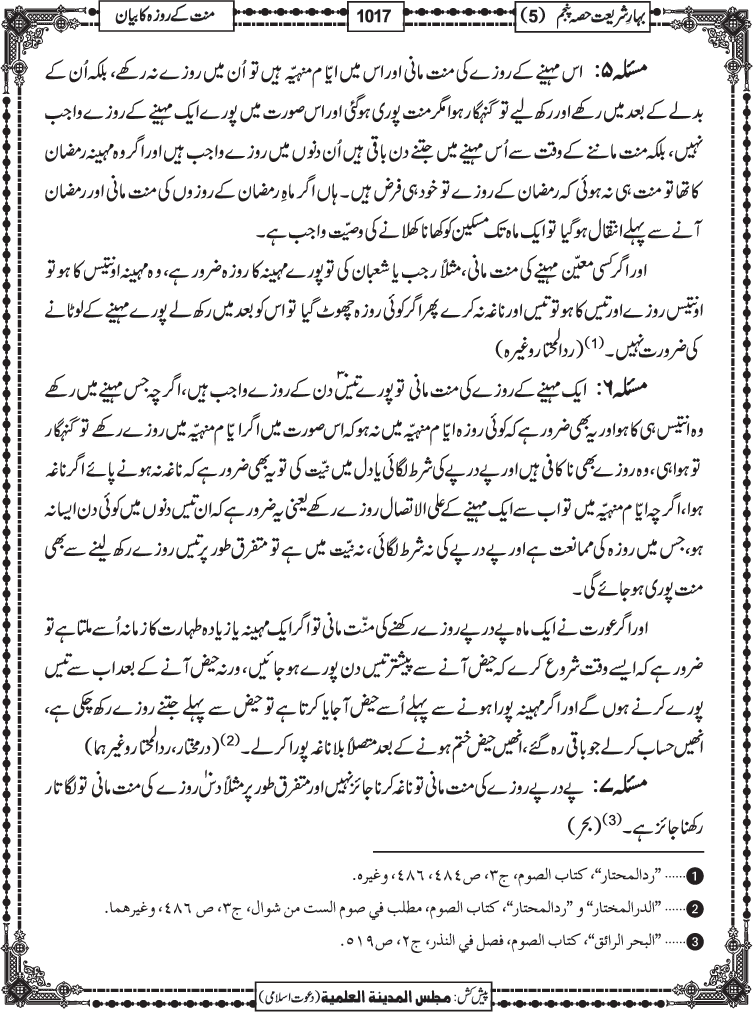 بہارِ شریعت حصہ پنجم (5)
1017
منت کے روزہ کا بیان
مسئلہ ۵: اس مہینے کے روزے کی منت مانی اور اس میں ایّامِ منہیّہ ہیں تو اُن میں روزے نہ رکھے، بلکہ اُن کے
بدلے کے بعد میں رکھے اور رکھ لیے تو گنہگار ہوا مگر منت پوری ہوگئی اور اس صورت میں پورے ایک مہینے کے روزے واجب
نہیں، بلکہ منت ماننے کے وقت سے اُس مہینے میں جتنے دن باقی ہیں اُن دنوں میں روزے واجب ہیں اور اگر وہ مہینہ رمضان
کا تھا تو منت ہی نہ ہوئی کہ رمضان کے روزے تو خود ہی فرض ہیں۔ ہاں اگر ماہِ رمضان کے روزوں کی منت مانی اور رمضان
آنے سے پہلے انتقال ہوگیا تو ایک ماہ تک مسکین کو کھانا کھلانے کی وصیّت واجب ہے۔
اور اگر کسی معیّن مہینے کی منت مانی، مثلاً رجب یا شعبان کی تو پورے مہینہ کا روزہ ضرور ہے، وہ مہینہ اونتیس کا ہو تو
اونتیس روزے اور تیس کا ہو تو تیس اور ناغہ نہ کرے پھر اگر کوئی روزہ چھوٹ گیا تو اس کو بعد میں رکھ لے پورے مہینے کے لوٹانے
کی ضرورت نہیں۔(1) (ردالمحتار وغیرہ)
مسئلہ ۶: ایک مہینے کے روزے کی منت مانی تو پورے تیس۳۰ دن کے روزے واجب ہیں، اگرچہ جس مہینے میں رکھے
وہ انتیس ہی کا ہو اور یہ بھی ضرور ہے کہ کوئی روزہ ایّامِ منہیّہ میں نہ ہو کہ اس صورت میں اگر ایّامِ منہیّہ میں روزے رکھے تو گنہگار
تو ہوا ہی، وہ روزے بھی ناکافی ہیں اور پے درپے کی شرط لگائی یا دل میں نیّت کی تو یہ بھی ضرور ہے کہ ناغہ نہ ہونے پائے اگر ناغہ
ہوا، اگرچہ ایّامِ منہیّہ میں تو اب سے ایک مہینے کے علی الاتصال روزے رکھے یعنی یہ ضرور ہے کہ ان تیس دنوں میں کوئی دن ایسا نہ
ہو، جس میں روزہ کی ممانعت ہے اور پے درپے کی نہ شرط لگائی، نہ نیّت میں ہے تو متفرق طور پر تیس روزے رکھ لینے سے بھی
منت پوری ہو جائے گی۔
اور اگر عورت نے ایک ماہ پے درپے روزے رکھنے کی منّت مانی تو اگر ایک مہینہ یا زیادہ طہارت کا زمانہ اُسے ملتا ہے تو
ضرور ہے کہ ایسے وقت شروع کرے کہ حیض آنے سے پیشتر تیس دن پورے ہو جائیں، ورنہ حیض آنے کے بعد اب سے تیس
پورے کرنے ہوں گے اور اگر مہینہ پورا ہونے سے پہلے اُسے حیض آ جایا کرتا ہے تو حیض سے پہلے جتنے روزے رکھ چکی ہے،
انھیں حساب کرلے جو باقی رہ گئے، انھیں حیض ختم ہونے کے بعد متصلاً بلا ناغہ پورا کرلے۔(2) (درمختار، ردالمحتار وغیرہما)
مسئلہ ۷: پے درپے روزے کی منت مانی تو ناغہ کرنا جائز نہیں اور متفرق طور پر مثلاً دس۱۰ روزے کی منت مانی تو لگاتار
رکھنا جائز ہے۔(3) (بحر)
1 ...... ”ردالمحتار“، کتاب الصوم، ج۳، ص۴۸۴، ۴۸۶، وغیرہ.
2 ...... ”الدرالمختار“ و ”ردالمحتار“، کتاب الصوم، مطلب في صوم الست من شوال، ج۳، ص ۴۸۶، وغیرهما.
3 ...... ”البحر الرائق“، کتاب الصوم، فصل في النذر، ج۲، ص۵۱۹.
پیش کش: مجلس المدینة العلمیة (دعوت اسلامی)